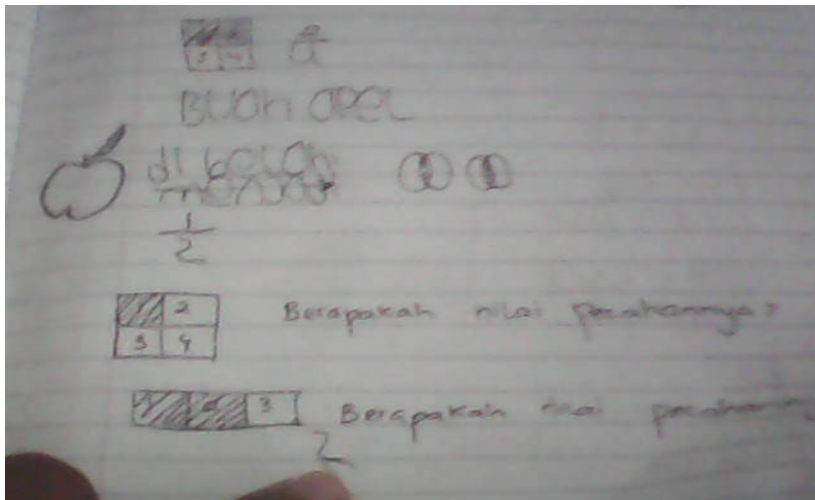 3 4
BUAH APEL
di belah
menjadi
1
2
2
3 4
Berapakah nilai pecahannya?
3
Berapakah nilai
2